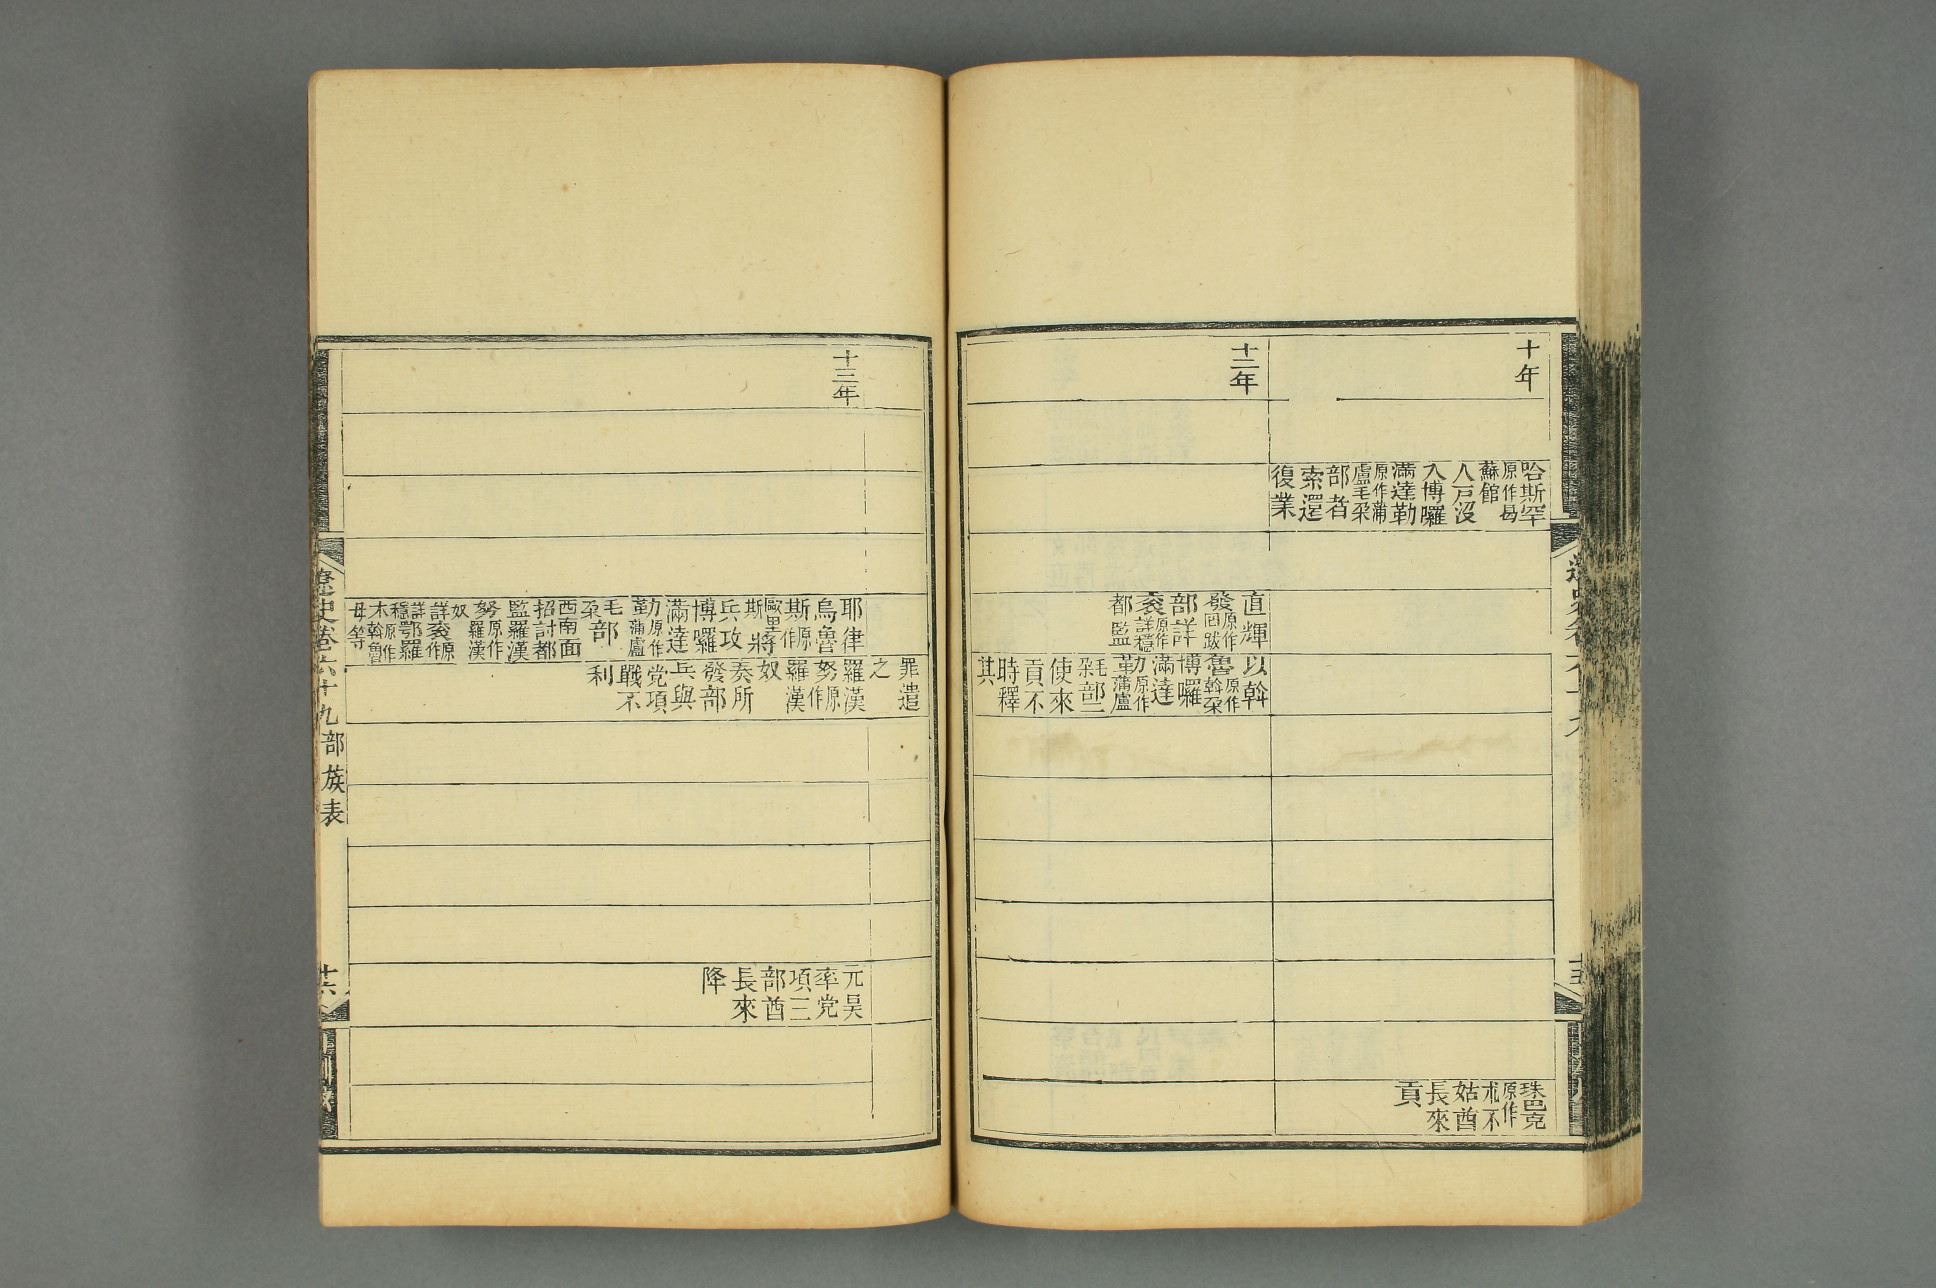 十年
哈斯罕
原作曷
蘇館
人戸沒
入博囉
滿達勒
原作蒲
盧毛朵
部者
索還
復業
珠巴克
原作
朮不
姑酋
長來
貢
十二年
直輝
發原作
回跋
部詳
衮原作
詳穩
都監
以斡
魯原作
斡朶
博囉
滿達
勒原作
蒲盧
毛
朶部二
使來
貢不
時釋
其
罪遣
之
十三年
耶律
烏魯
斯原
作
歐里
斯將
兵攻
博囉
滿達
勒原作
蒲盧
毛
朶部
西南面
招討都
監羅漢
努原作
羅漢
奴
詳衮原
作
詳
穩鄂羅
木原作
斡魯
母等
羅漢
努原
作
羅漢
奴
奏所
發部
兵與
党項
戰不
利
元昊
率党
項三
部酋
長來
降
遼史卷六十九 部族表
十六